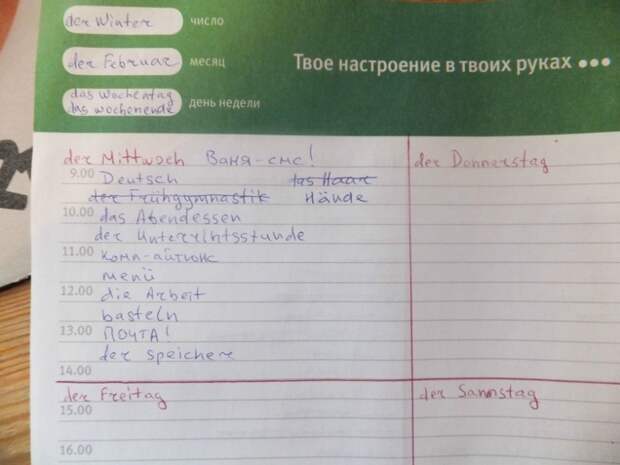 der Winter число
der Februar месяц
Твое настроение в твоих руках •••
das Wochentag
das wochenende день недели
der Mittwoch Ваня-смс!
der Donnerstag
9.00 Deutsch das Haar
der Frühgymnastik Hände
10.00 das Abendessen
der Unterrihtsstunde
11.00 комп-айтюнс
menü
12.00 die Arbeit
basteln
13.00 ПОЧТА!
der speicher
14.00
der Freitag
der Samnstag
15.00
16.00